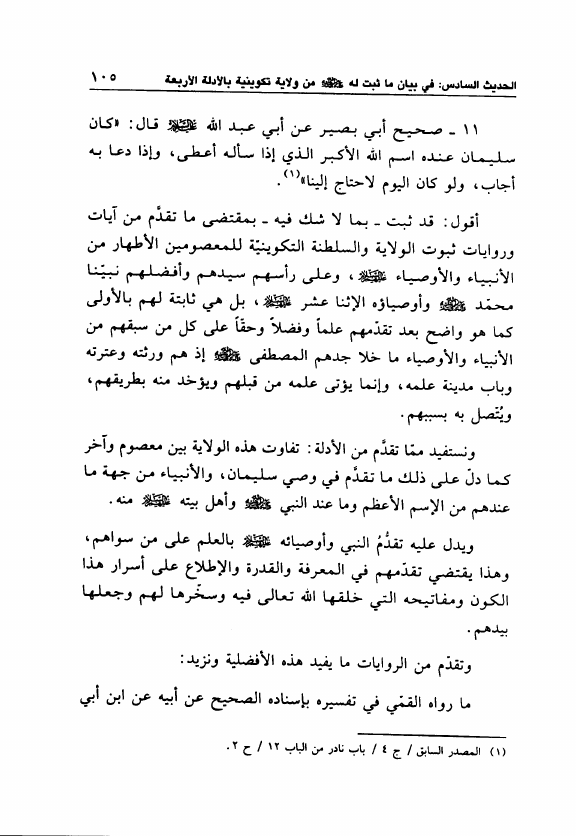 الحديث السادس: في بيان ما ثبت له ﷺ من ولاية تكوينية بالأدلة الأربعة ١٠٥
١١ ـ صحيح أبي بصير عن أبي عبد الله عليه السلام قال: «كان
سليمان عنده اسم الله الأكبر الذي إذا سأله أعطى، وإذا دعا به
أجاب، ولو كان اليوم لاحتاج إلينا»(١).
أقول: قد ثبت ـ بما لا شك فيه ـ بمقتضى ما تقدَّم من آيات
وروايات ثبوت الولاية والسلطنة التكوينيّة للمعصومين الأطهار من
الأنبياء والأوصياء عليهم السلام، وعلى رأسهم سيدهم وأفضلهم نبيّنا
محمّد ﷺ وأوصياؤه الإثنا عشر عليهم السلام، بل هي ثابتة لهم بالأولى
كما هو واضح بعد تقدّمهم علماً وفضلاً وحقّاً على كل من سبقهم من
الأنبياء والأوصياء ما خلا جدهم المصطفى ﷺ إذ هم ورثته وعترته
وباب مدينة علمه، وإنما يؤتى علمه من قبلهم ويؤخد منه بطريقهم،
ويُتّصل به بسببهم.
ونستفيد ممّا تقدَّم من الأدلة: تفاوت هذه الولاية بين معصوم وآخر
كما دلّ على ذلك ما تقدَّم في وصي سليمان، والأنبياء من جهة ما
عندهم من الإسم الأعظم وما عند النبي ﷺ وأهل بيته عليهم السلام منه.
ويدل عليه تقدُّم النبي وأوصيائه عليهم السلام بالعلم على من سواهم،
وهذا يقتضي تقدّمهم في المعرفة والقدرة والإطلاع على أسرار هذا
الكون ومفاتيحه التي خلقها الله تعالى فيه وسخّرها لهم وجعلها
بيدهم.
وتقدّم من الروايات ما يفيد هذه الأفضلية ونزيد:
ما رواه القمّي في تفسيره بإسناده الصحيح عن أبيه عن ابن أبي
(١) المصدر السابق / ج ٤ / باب نادر من الباب ١٢ / ح ٢.